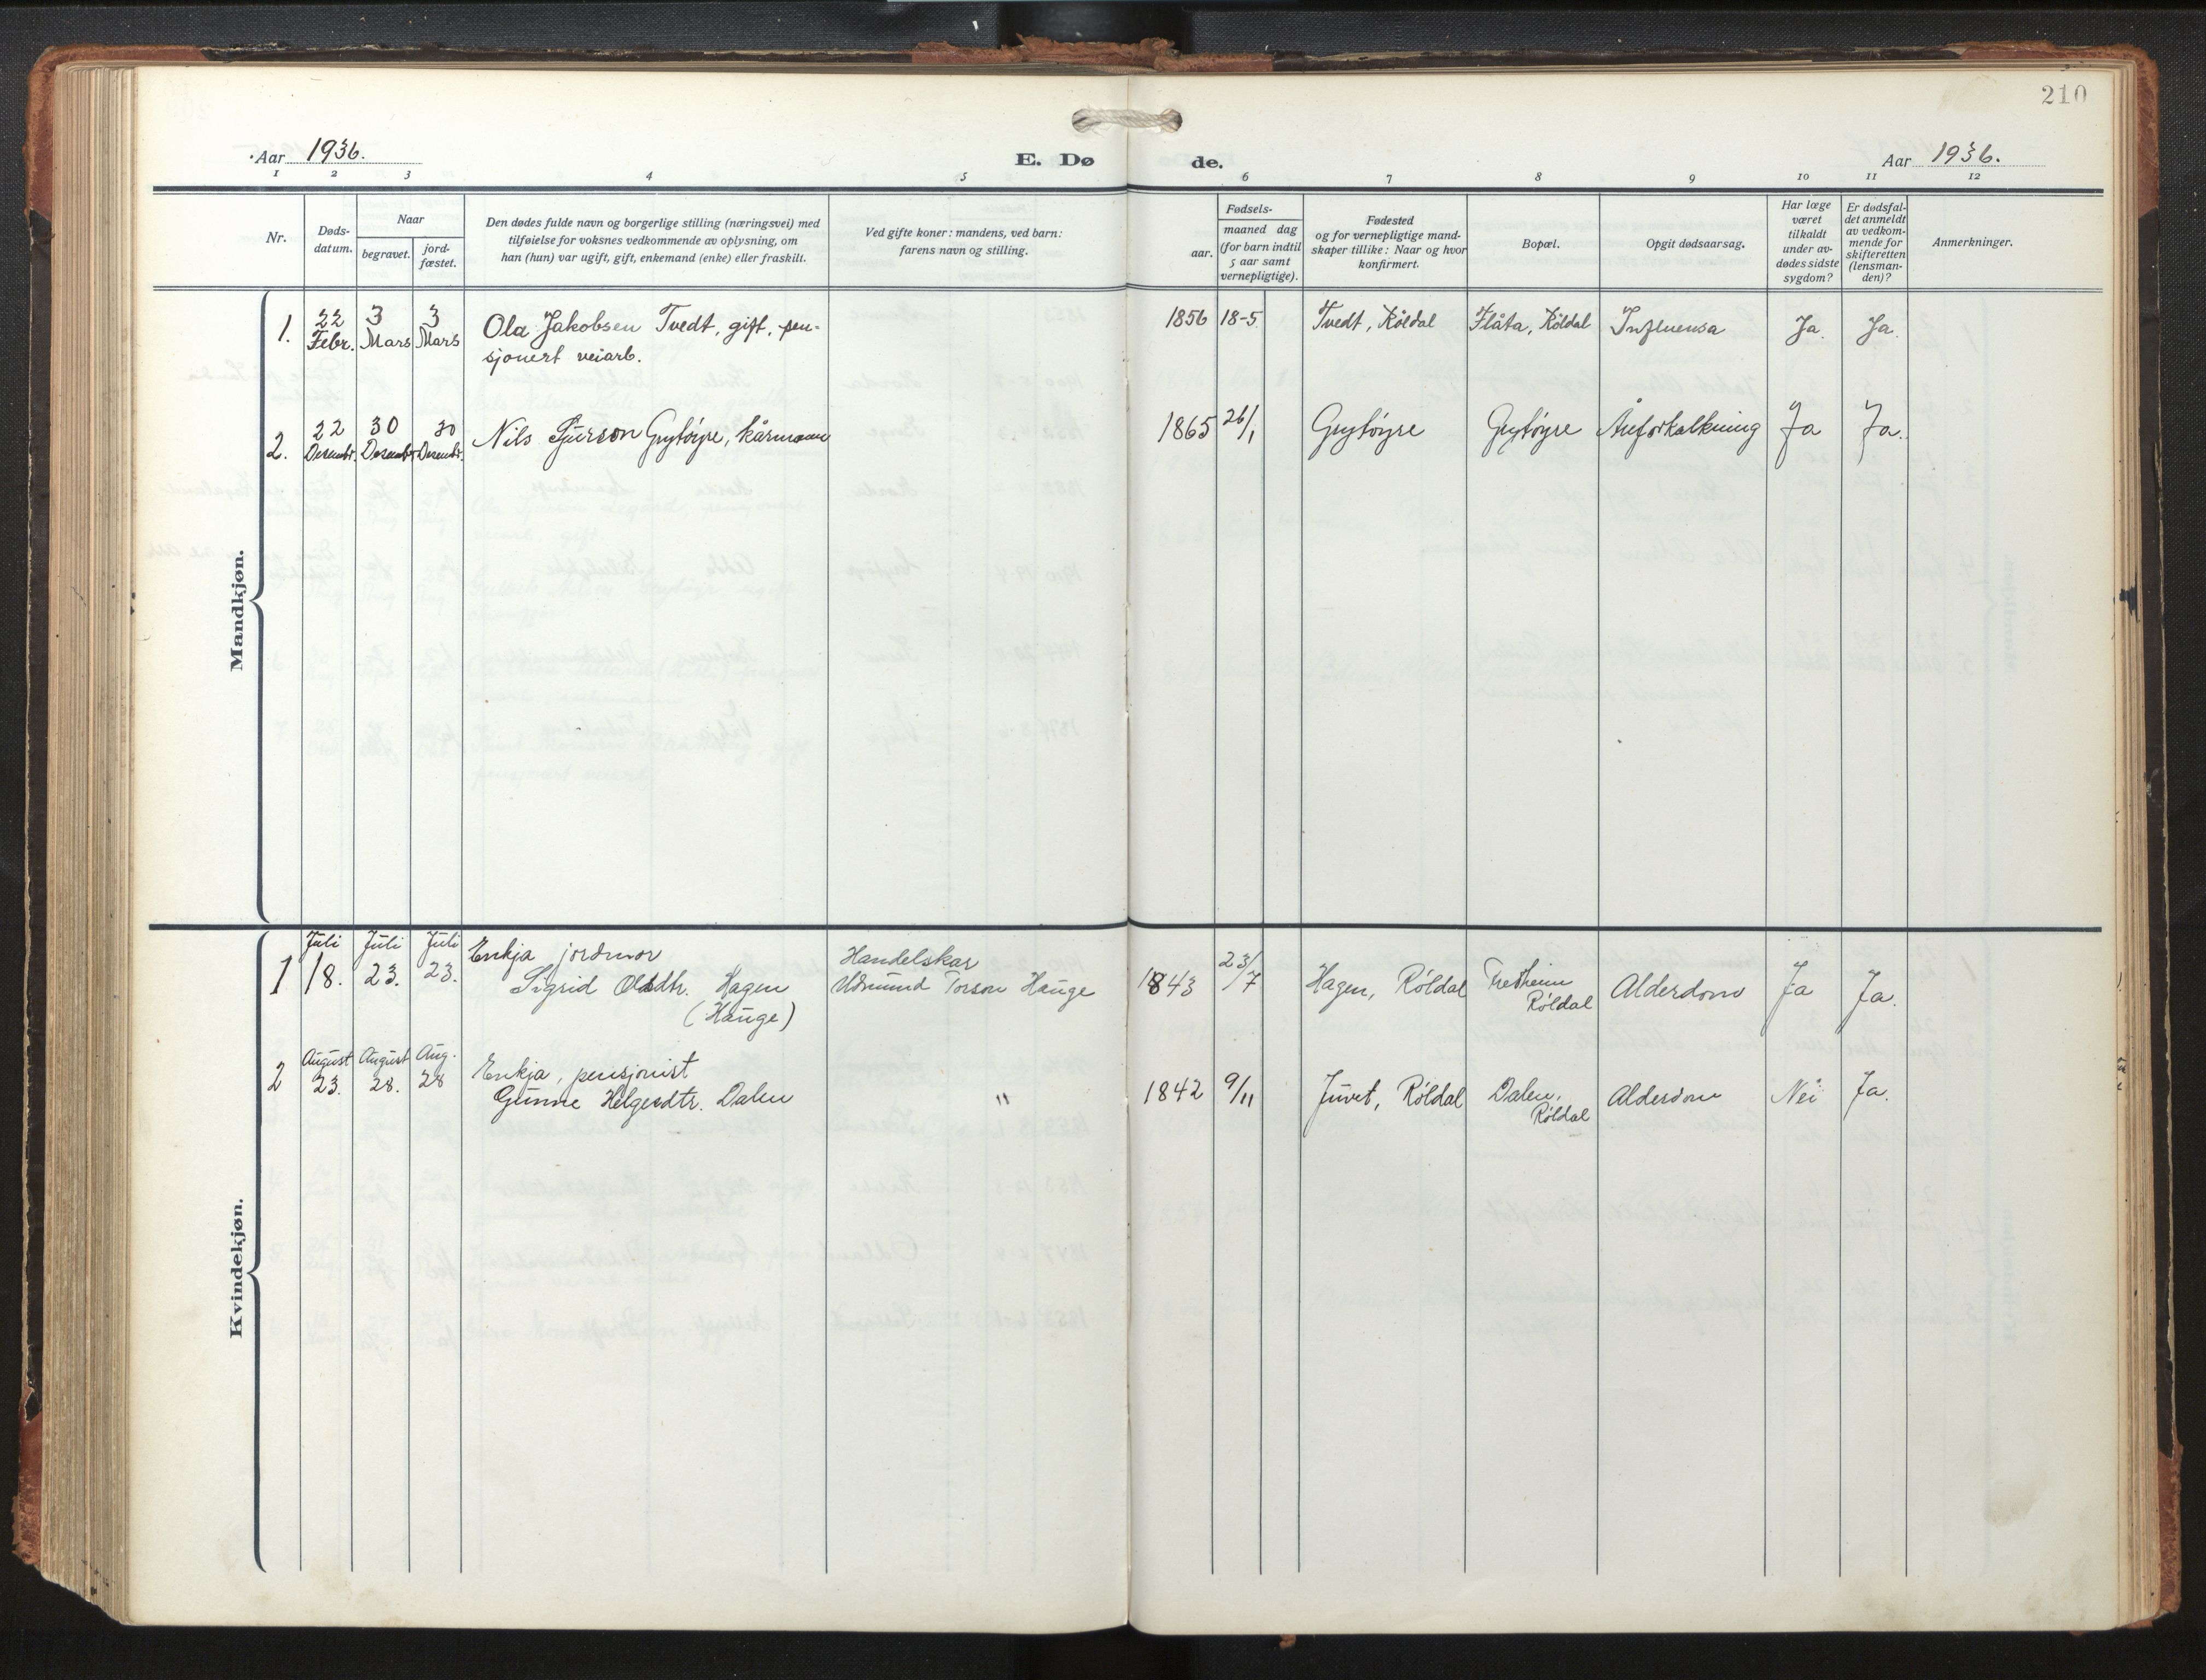 210
Aar 1936.
E. Dø
de.
Aar 1936.
1 2 3 4 5 6 7 8 9 10 11 12
Nr.
Døds-
datum.
Naar
begravet.
jord-
fæstet.
Den dødes fulde navn og borgerlige stilling (næringsvei) med
tilføielse for voksnes vedkommende av oplysning, om
han (hun) var ugift, gift, enkemand (enke) eller fraskilt.
Ved gifte koner: mandens, ved barn:
farens navn og stilling.
Fødsels-
aar.
maaned dag
(for barn indtil
5 aar samt
vernepligtige).
Fødested
og for vernepligtige mand-
skaper tillike: Naar og hvor
konfirmert.
Bopæl.
Opgit dødsaarsag.
Har læge
været
tilkaldt
under av-
dødes sidste
sygdom?
Er dødsfal-
det anmeldt
av vedkom-
mende for
skifteretten
(lensman-
den)?
Anmerkninger.
Mandkjøn.
1. 22 Febr. 3 Mars 3 Mars Ola Jakobsen Tvedt, gift, pen-
sjonert veiarb.
1856 18-5 Tvedt, Røldal Flåta, Røldal Influensa Ja. Ja.
2. 22 Desembr. 30 Desembr 30 Desembr. Nils Sjurson Grytøyre, kårmann
1865 26/1 Grytøyre Grytøyre Åreforkalkning Ja Ja.
Kvindekjøn.
1 Juli 18. Juli 23. Juli 23. Enkja jordmor
Sigrid Olsdtr. Hagen
(Hauge)
Handelskar
Udmund Torson Hauge
1843 23/7 Hagen, Røldal Fretheim
Røldal
Alderdom Ja Ja.
2 August 23. August 28. Aug. 28 Enkja, pensjonist
Gunne Helgesdtr. Dalen
"
1842 9/11 Juvet, Røldal Dalen,
Røldal
Alderdom Nei Ja.